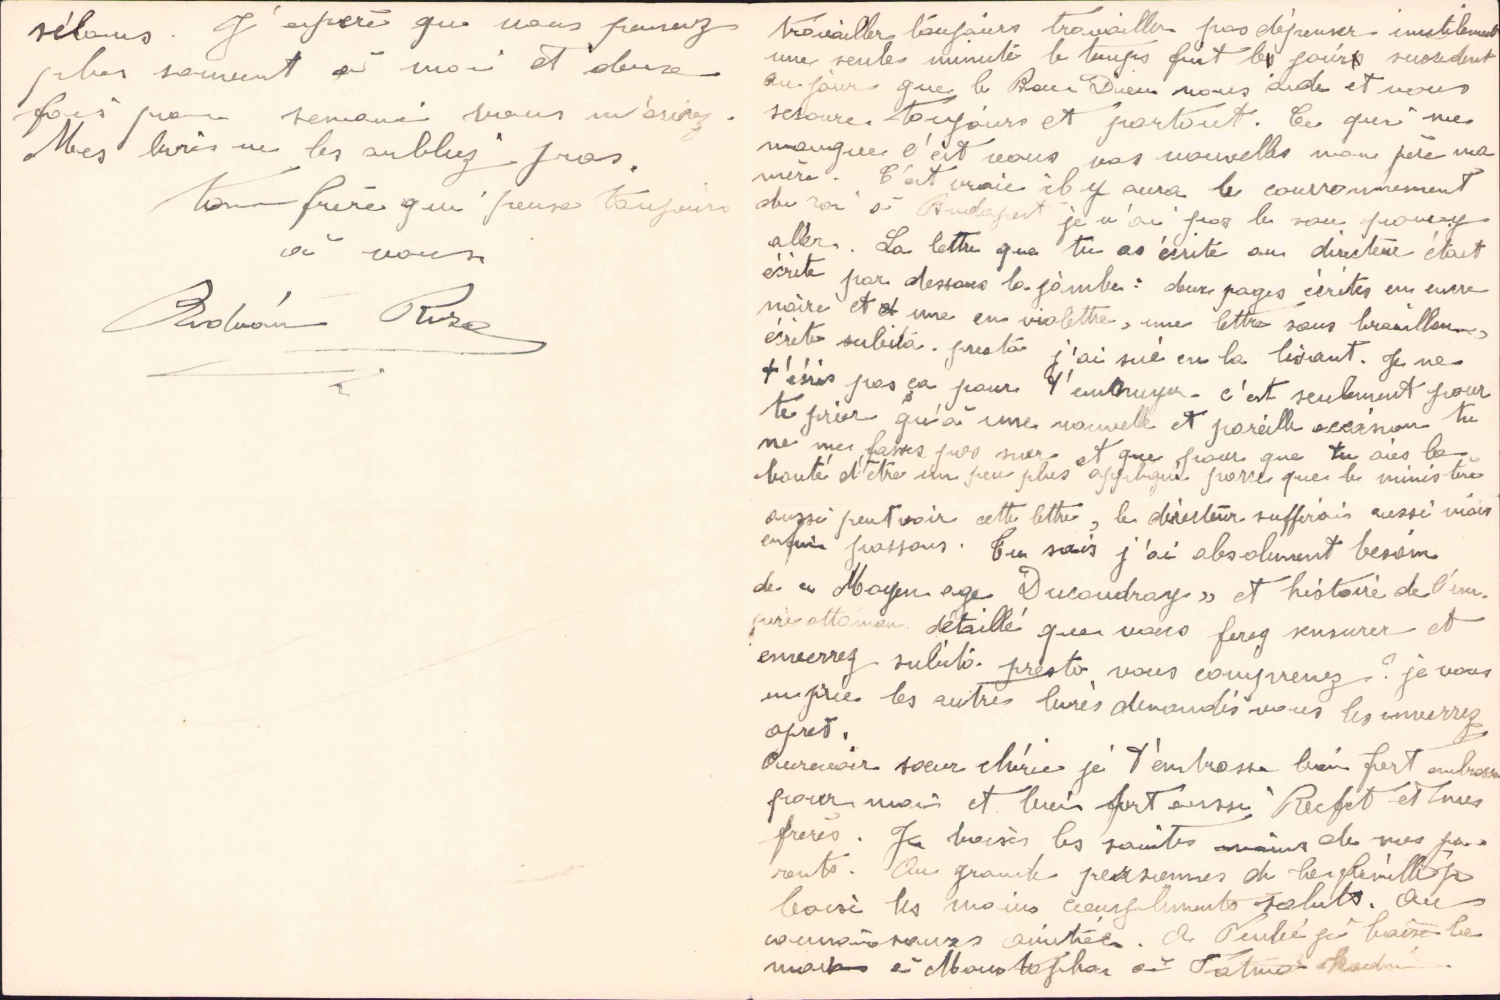 travailler toujours travailler pas dépenser inutilement
une seule minute le temps fuit les jours succedent
au jour que le Bon Dieu nous aide et nous
secoure toujours et partout. Ce qui me
manque c'est vous vos nouvelles mon père ma
mère. C'est vraie il y aura le courronnement
du roi à Budapest je n'ai pas le sou pour y
aller. La lettre que tu as écrite au directeur était
écrite par dessous la jambe : deux pages écrites en encre
noire et une en violettre, une lettre sans brouillon,
écrite subito. presto j'ai sué en la lisant. Je ne
t'écris pas ça pour t'ennuyer c'est seulement pour
te prier qu'à une nouvelle et pareille occasion tu
ne me fasses pas suer et que pour que tu aies la
bonté d'être un peu plus appliqué parce que le ministère
aussi peut voir cette lettre, le directeur aussi mais
enfin passons. Tu sais j'ai absolument besoin
de « Moyen age Ducoudray » et histoire de l'em-
pire ottoman détaillé que vous ferez et
enverrez subito. presto vous comprenez ? je vous
en prie les autres livres demandés vous les enverrez
apret.
Aurevoir sœur chérie je t'embrasse bien fort embrasse
pour moi et bien fort aussi Reefet et mes
frères. Je baises les saintes mains de mes pa-
rents. Au grande personnes de la famille je
baise les mains compliments saluts. Au
connaissances amitiée. A je baise la
main à Moustapha à Fatma
sétous. J'espère que vous pensez
plus souvent à moi et deux
fois par semaine vous m'écrirez.
Mes livres ne les oubliez pas.
Ton frère qui pense toujours
à vous
Rıza